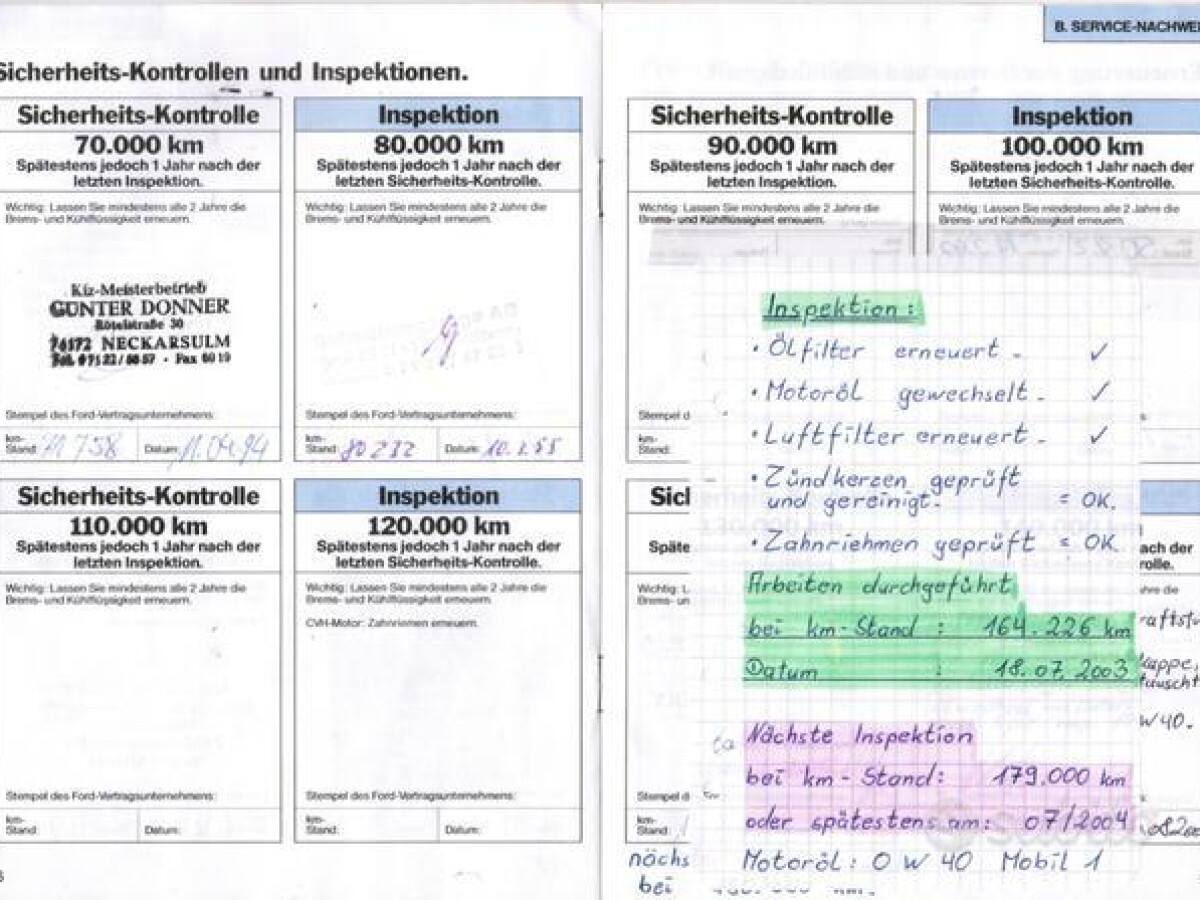 B. SERVICE-NACHWEI
Sicherheits-Kontrollen und Inspektionen.
Sicherheits-Kontrolle
70.000 km
Spätestens jedoch 1 Jahr nach der
letzten Inspektion.
Wichtig: Lassen Sie mindestens alle 2 Jahre die
Brems- und Kühlflüssigkeit erneuern.
Kfz-Meisterbetrieb
GÜNTER DONNER
Rötelstraße 30
74172 NECKARSULM
Stempel des Ford-Vertragsunternehmens:
km-
Stand: 71 758 Datum: 11.04.94
Inspektion
80.000 km
Spätestens jedoch 1 Jahr nach der
letzten Sicherheits-Kontrolle.
Wichtig: Lassen Sie mindestens alle 2 Jahre die
Brems- und Kühlflüssigkeit erneuern.
Stempel des Ford-Vertragsunternehmens:
km-
Stand: 80 232 Datum:
Sicherheits-Kontrolle
90.000 km
Spätestens jedoch 1 Jahr nach der
letzten Inspektion.
Wichtig: Lassen Sie mindestens alle 2 Jahre die
Brems- und Kühlflüssigkeit erneuern.
Stempel d
km-
Stand:
Inspektion
100.000 km
Spätestens jedoch 1 Jahr nach der
letzten Sicherheits-Kontrolle.
Wichtig: Lassen Sie mindestens alle 2 Jahre die
Brems- und Kühlflüssigkeit erneuern.
Sicherheits-Kontrolle
110.000 km
Spätestens jedoch 1 Jahr nach der
letzten Inspektion.
Wichtig: Lassen Sie mindestens alle 2 Jahre die
Brems- und Kühlflüssigkeit erneuern.
Stempel des Ford-Vertragsunternehmens:
km-
Stand: Datum:
Inspektion
120.000 km
Spätestens jedoch 1 Jahr nach der
letzten Sicherheits-Kontrolle.
Wichtig: Lassen Sie mindestens alle 2 Jahre die
Brems- und Kühlflüssigkeit erneuern.
CVH-Motor: Zahnriemen erneuern.
Stempel des Ford-Vertragsunternehmens:
km-
Stand: Datum:
Sicl
Späte
Wichtig: L
Brems- un
Stempel d
km-
Stand:
nächs
bei
Inspektion:
• Ölfilter erneuert - ✓
• Motoröl gewechselt - ✓
• Luftfilter erneuert - ✓
• Zündkerzen geprüft
und gereinigt. = OK.
• Zahnriemen geprüft = OK.
Arbeiten durchgeführt
bei km-Stand : 164.226 km
Datum : 18.07.2003
Nächste Inspektion
bei km-Stand: 179.000 km
oder spätestens am: 07/2004
Motoröl: 0 W 40 Mobil 1
ach der
rolle.
hre die
raftstu
kappe,
tauscht
W 40.